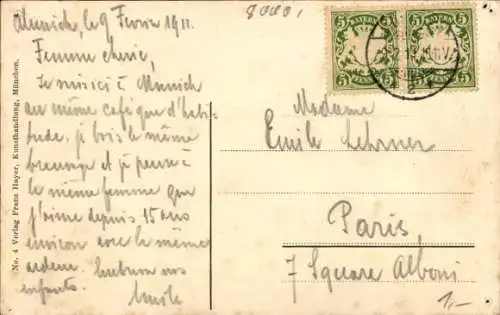 8080,
Munich, le 9 Fevrier 1911.
Femme cherie,
Je suis ici à Munich
au même café que d'habi-
tude, je bois le même
breuvage et je pense à
la même femme que
j'aime depuis 15 ans
environ avec le même
ardeur. Embrasse nos
enfants.
Emile
BAYERN BAYERN
5 5 5 5
Madame
Emile Lehrner
Paris,
7 Square Alboni
1,-
No. 4 Verlag Franz Hayer, Kunsthandlung, München.